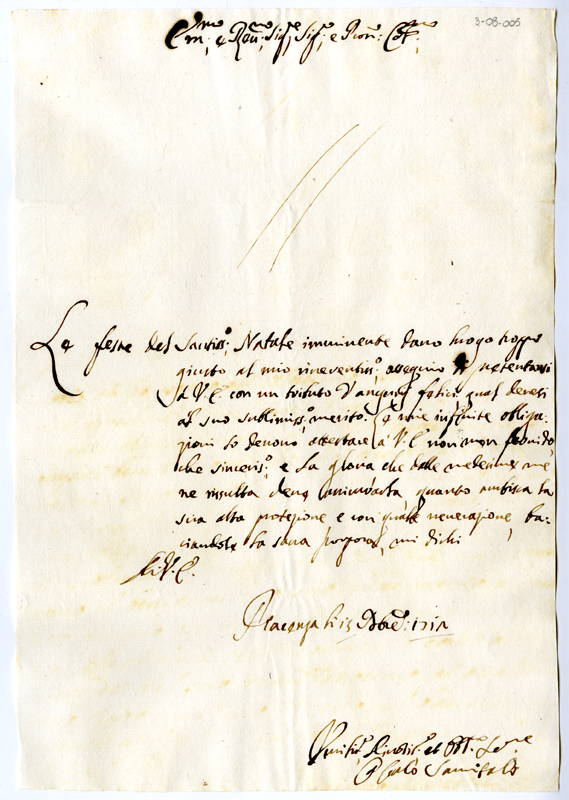 3-08-005
Em:mo e Rev:mo Sig:re Sig:re e Pron: Col:mo
Le feste del Santiss:o Natale imminente dano luogo troppo
giusto al mio riverentiss:o ossequio di presentarsi
à V. E. con un tributo d'augurij felici qual devesi
al suo sublimiss:o merito. Le mie infinite obliga-
zioni lo devono attestare à V. E. non men devoto
che sinceris:o e la gloria che dalle medesime me
ne risulta quanto ambisca la
sua alta protezione e con venerazione, ba-
ciandole la sacra porpora, mi dichi
Di V. E.
Piacenza li 13 Xbre: 171
Humilis:o Divotis:o et Obl:o Se:re